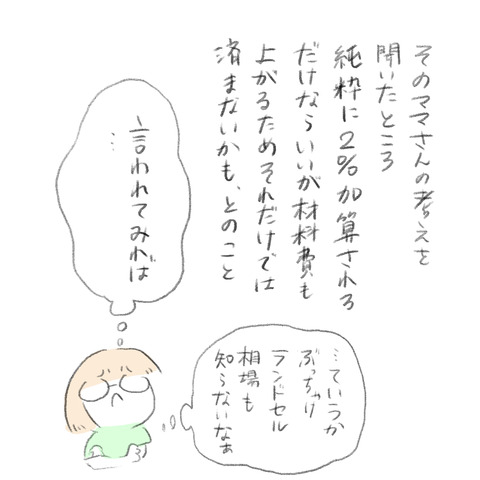 そのママさんの考えを
聞いたところ
純粋に2%加算される
だけならいいが材料費も
上がるためそれだけでは
済まないかも、とのこと
言われてみれば
…
…ていうか
ぶっちゃけ
ランドセル
相場も
知らないなぁ